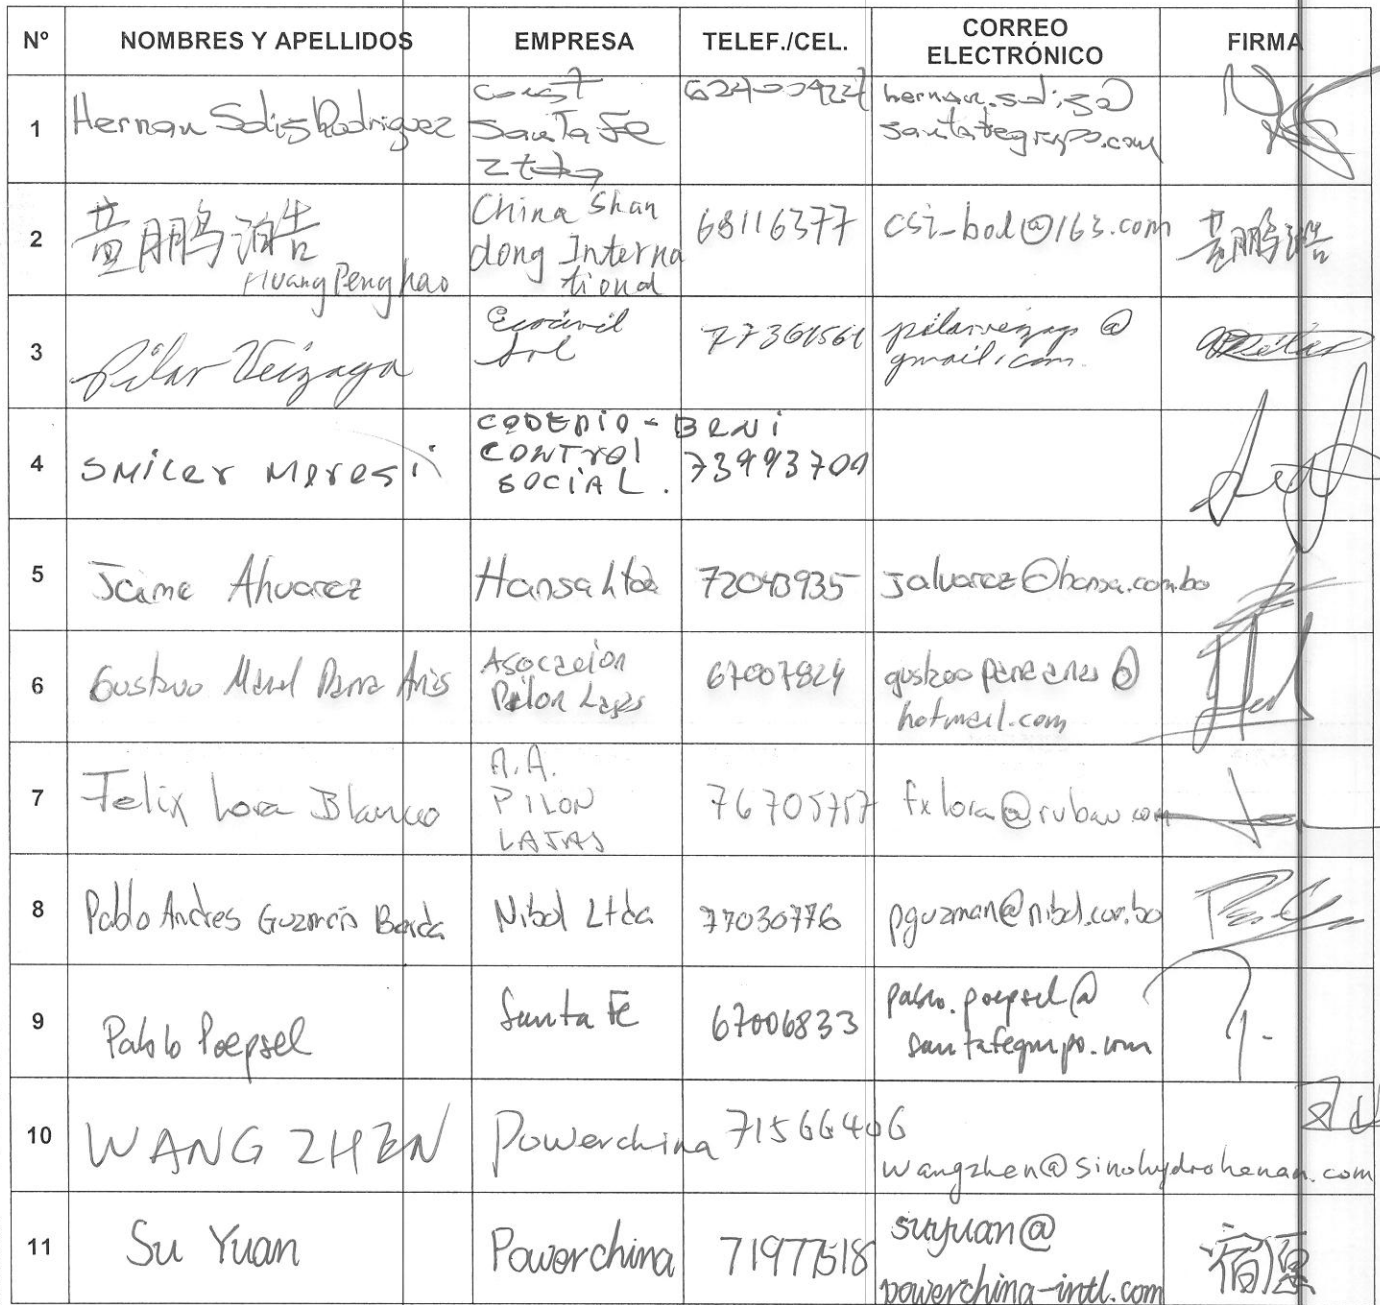 Nº NOMBRES Y APELLIDOS EMPRESA TELEF./CEL. CORREO ELECTRÓNICO FIRMA
1
Hernan Solis Rodriguez
Const
Santa Fe
Ltda
hernan.solis@
santafegrupo.com
2
黄鹏浩
Huang Peng hao
China Shan
dong Interna
tional
68116377
csi_bol@163.com
黄鹏浩
3
Pilar Veizaga
Ecocivil
Srl
77361561
gmail.com
4
CODEPIO - BENI
CONTROL
SOCIAL.
73993709
5
Jaime Alvarez
Hansa Ltda
72043935
jalvarez@hansa.com.bo
6
Gustavo
Parra Arias
Asociación
Pilon Lajas
67007824
hotmail.com
7
Felix Lora Blanco
A.A.
PILON
LAJAS
76705757
fxlora@rubau.com
8
Pablo Andres Guzmán
Nibol Ltda
77030776
pguzman@nibol.com.bo
9
Pablo Poepsel
Santa Fe
67006833
pablo.poepsel@
santafegrupo.com
10
WANG ZHEN
Powerchina
71566406
wangzhen@sinohydrohenan.com
11
Su Yuan
Powerchina
71977518
suyuan@
powerchina-intl.com